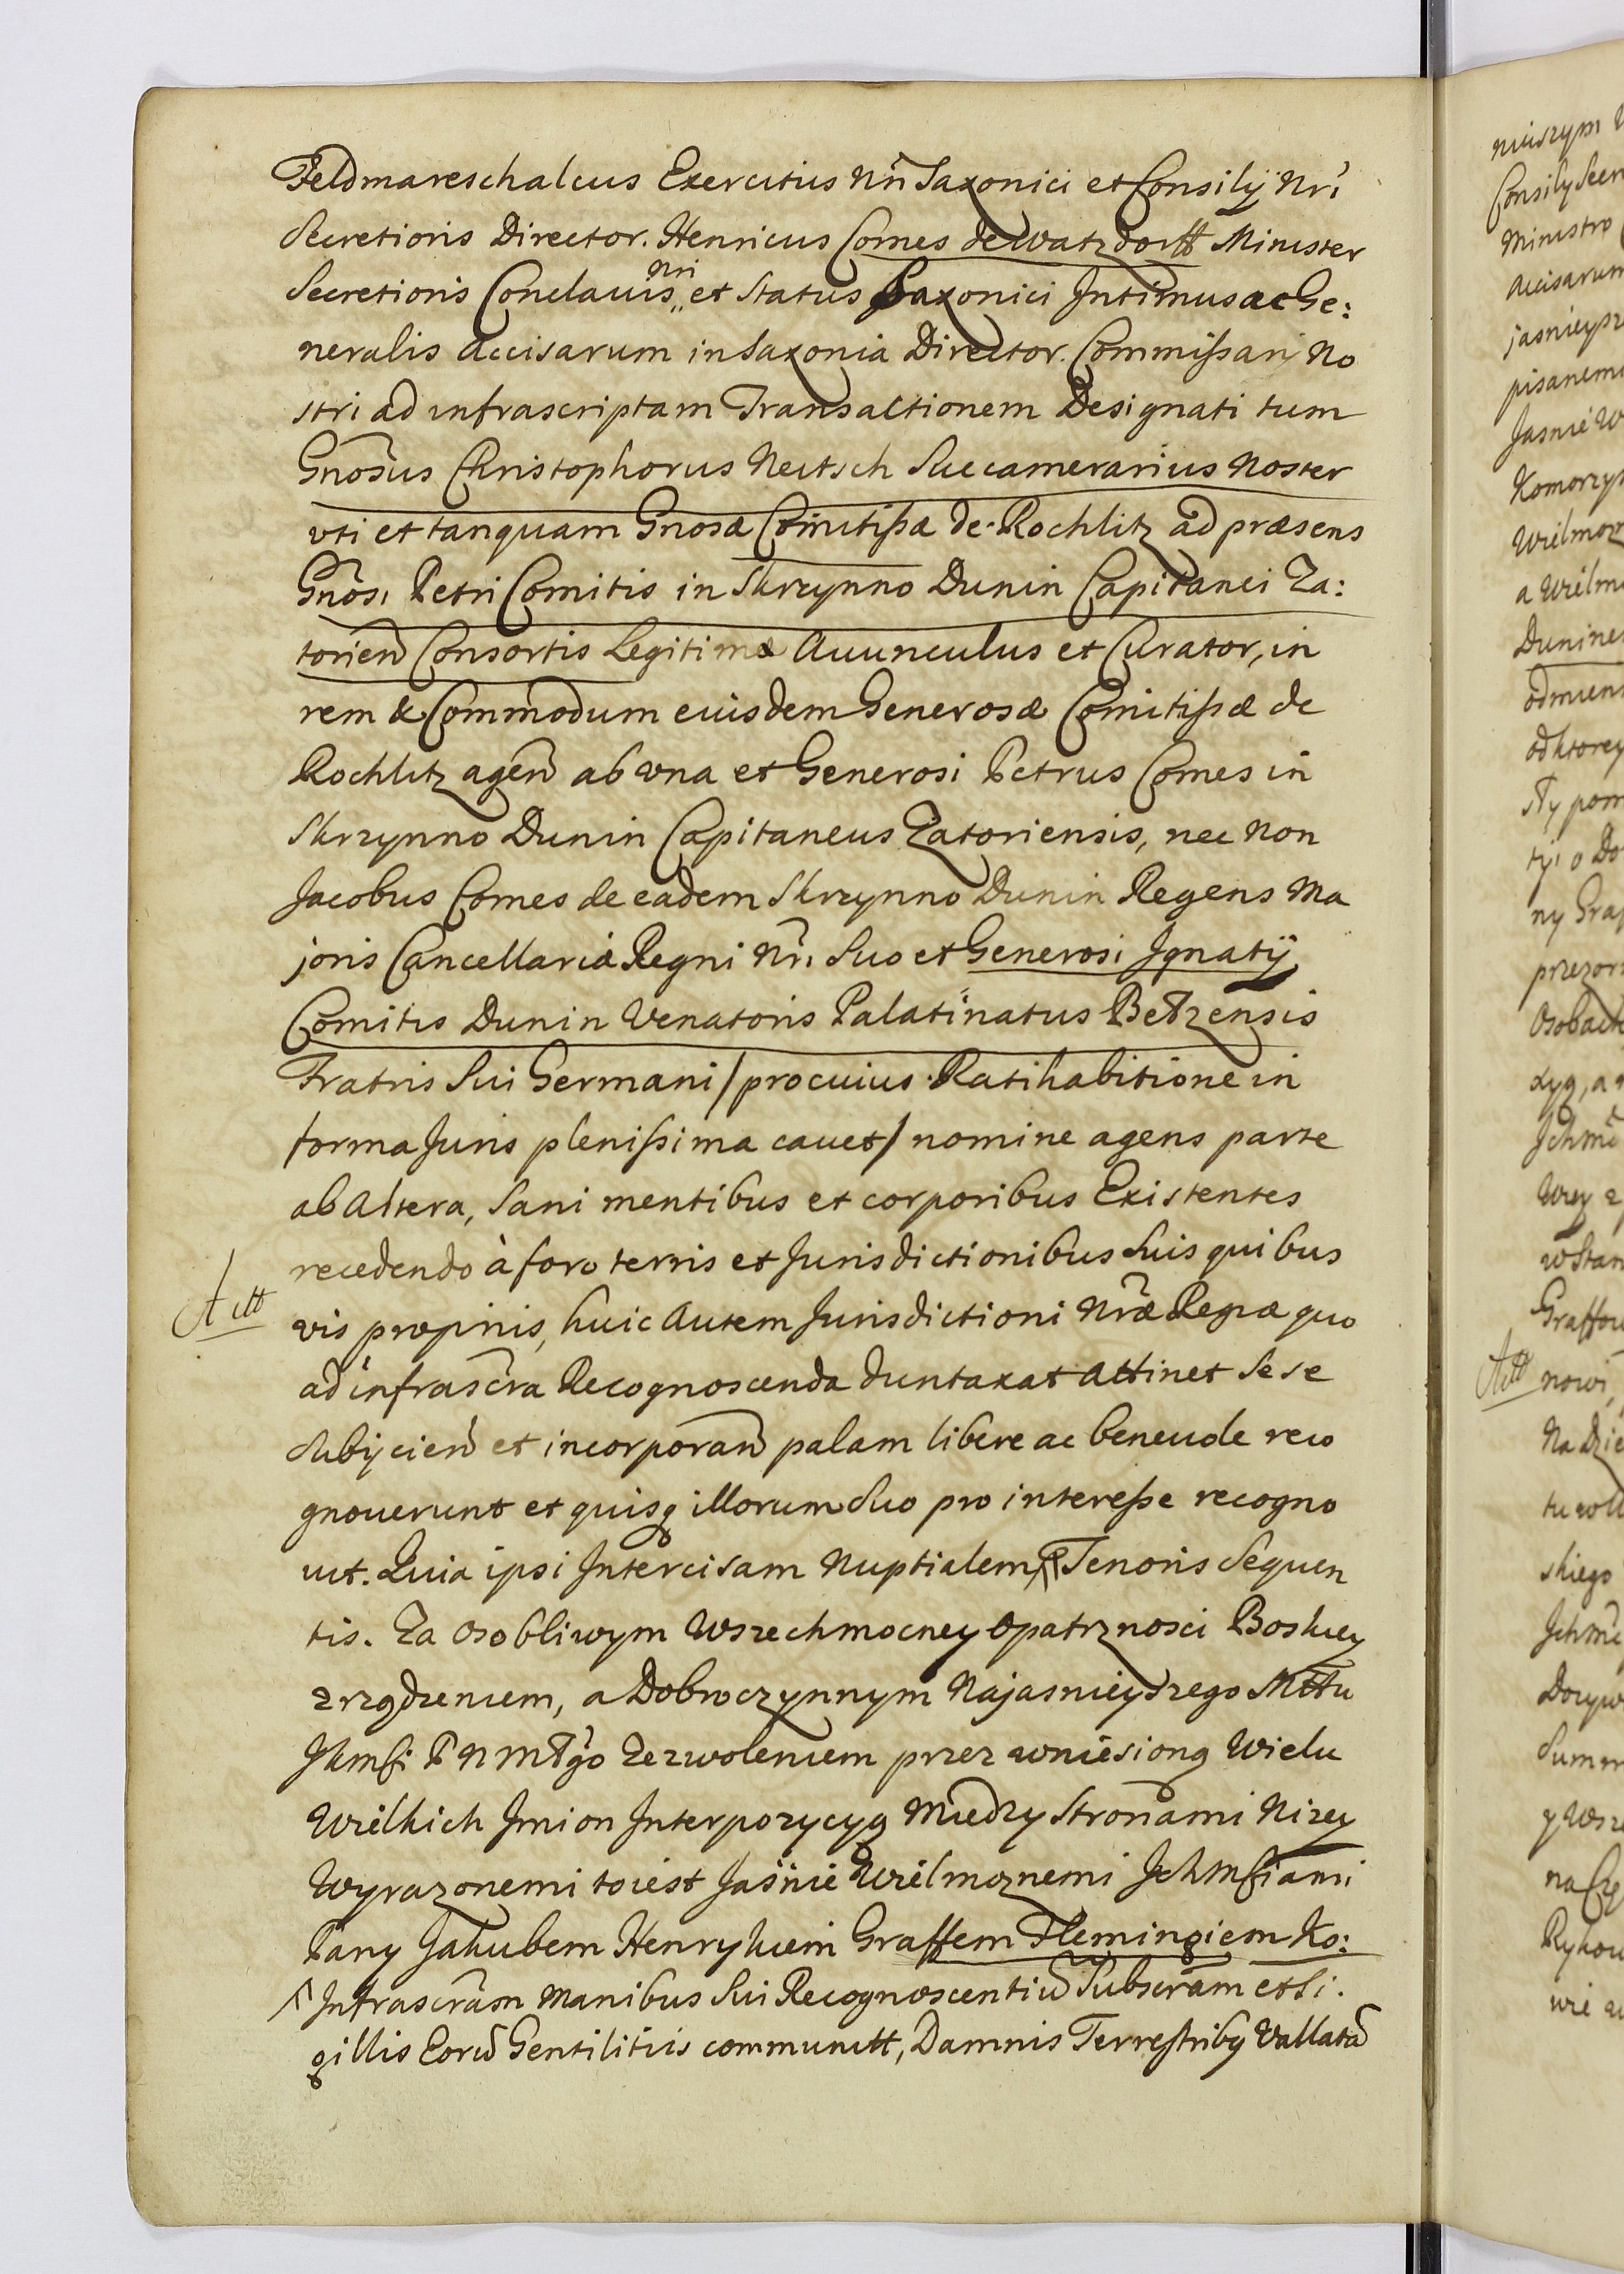 Feldmareschalcus Exercitus Nrĩ Saxonici et Consilij Nri
Secretioris Director. Henricus Comes de Watzdorff Minister
Secretioris Conclauis Nri et Status Saxonici Intimus ac Ge:
neralis Accisarum in Saxonia Director. Commissarij No
stri ad infrascriptam Transactionem Designati tum
Gnosus Christophorus Neitsch Succamerarius Noster
vti et tanquam Gnosæ Comitissæ de Rochlitz ad præsens
Gnosi Petri Comitis in Skrzynno Dunin Capitanei Za:
torien Consortis Legitimæ Auunculus et Curator, in
rem & Commodum eiusdem Generosæ Comitissæ de
Rochlitz agen ab vna et Generosi Petrus Comes in
Skrzynno Dunin Capitaneus Zatoriensis, nec Non
Jacobus Comes de eadem Skrzynno Dunin Regens Ma
joris Cancellariæ Regni Nri Suo et Generosi Jgnatij
Comitis Dunin Venatoris Palatinatus Bełzensis
Fratris Sui Germani / pro cuius Ratihabitione in
forma Juris plenissima cauet / nomine agens parte
ab Altera, Sani mentibus et corporibus Existentes
recedendo à foro terris et Jurisdictionibus Suis quibus
vis proprijs, huic Autem Jurisdictioni Nræ Regiæ quo
ad infrascra Recognoscenda duntaxat Attinet Se se
Subijcien et incorporan palam libere ac beneuole reco
gnouerunt et quisq illorum Suo pro interesse recogno
uit. Quia ipsi Intercisam Nuptialem Tenoris Sequen
tis. Za Osobliwym Wszechmocney Opatrznosci Boskiey
zrządzeniem, a Dobroczynnym Najasnieyszego Mttu
Jkmsci P N Młgo Zezwoleniem przez wniesioną Wielu
Wielkich Jmion Interpozycyą Miedzy Stronami Nizey
Wyrazonemi toiest Jasnie Wielmoznemi Jchmsciami
Pany Jakubem Henrykiem Graffem Flemingiem Ko:
Infrascram Manibus Sui Recognoscentiu Subscram et Si.
gillis Eoru Gentilitiis communitt, Damnis Terrestriby Vallata